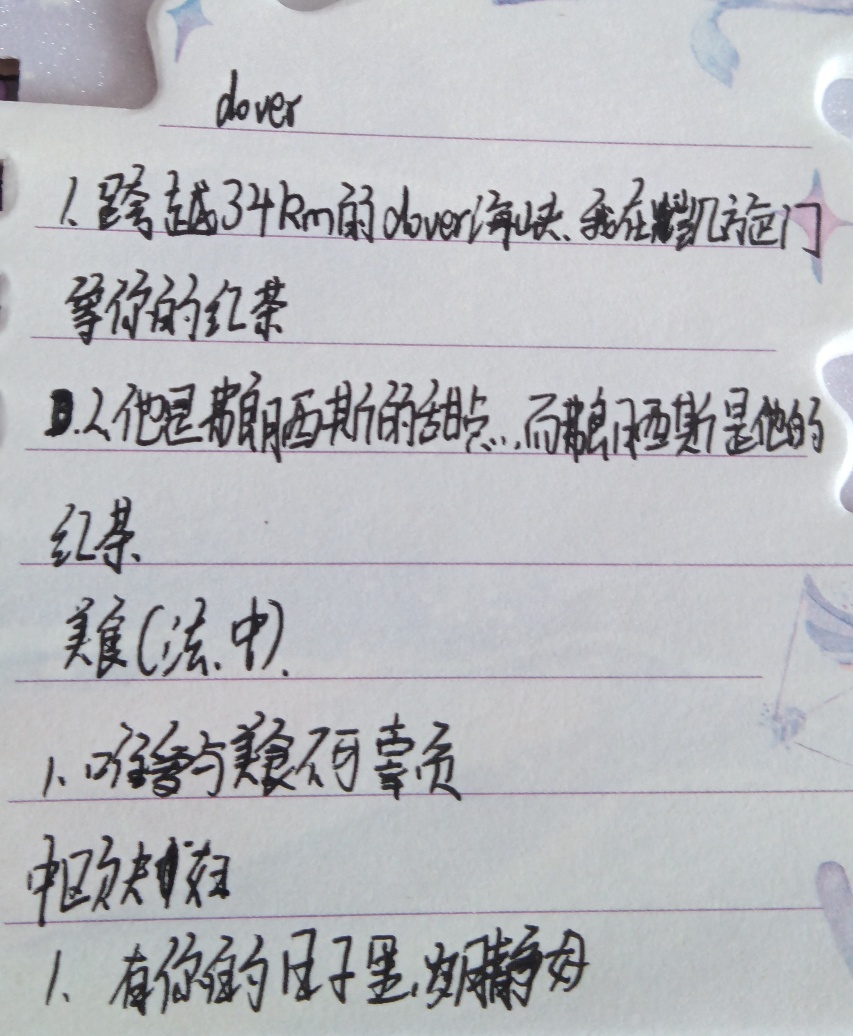 dover
1. 跨越34km的dover海峡、我在凯旋门
等你的红茶
2.他是弗朗西斯的甜点，而弗朗西斯是他的
红茶、
美食(法.中).
1、唯爱与美食不可辜负
中区夫妇
1. 有你在的日子里，岁月静好